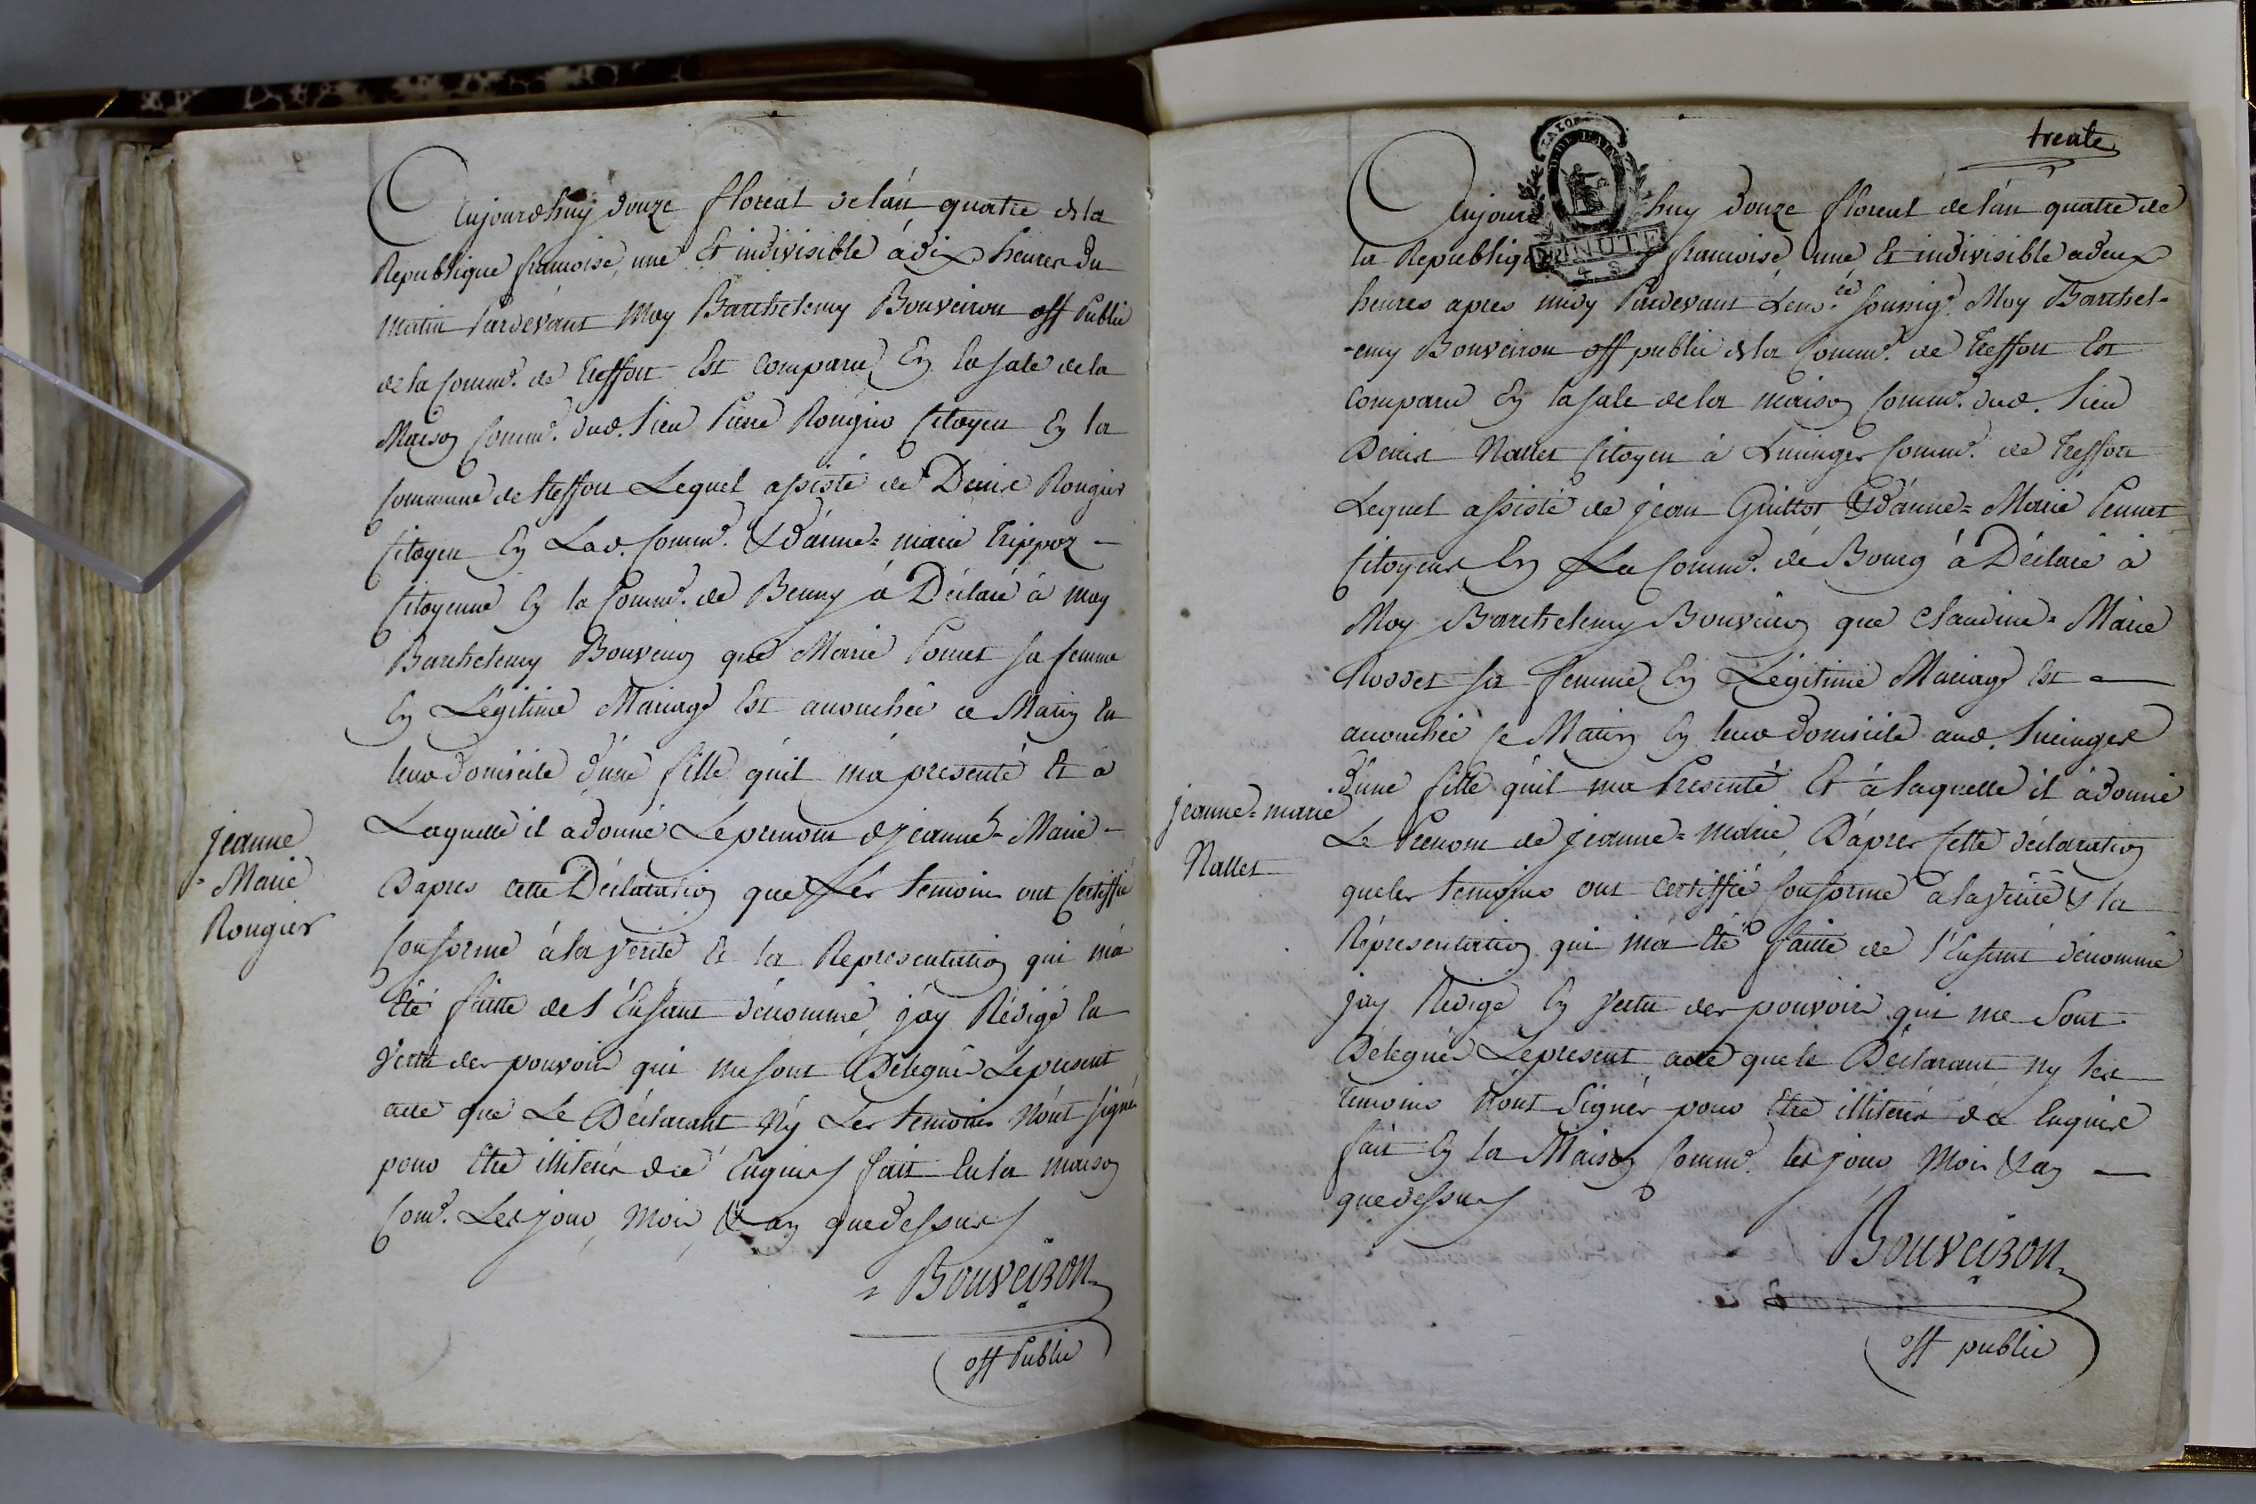 Aujourdhuy douze floreal de l'an quatre de la
Republique francoise, une Et indivisible à dix heures du
matin Pardevant Moy Barthelemy Bouveiron off Public
de la Comm.e de Treffort Est comparu En la sale de la
Maison Comm.e dud. Lieu Pierre Rougier Citoyen En la
Commune de treffort Lequel assisté de Denis Rougier
Citoyen En Lad. Comm.e & d'anne=marie Trippoz -
Citoyenne En la Comm.e de Benny à Déclaré à moy
Barthelemy Bouveiron que Marie Pomet sa femme
En Légitime Mariage Est accouchée ce Matin En
leur domicile d'une fille qu'il m'a presenté Et à
Laquelle il à donné Le prenom de jeanne-Marie -
D'apres cette Déclaration que Les temoins ont Certiffié
Conforme à la verité Et la Representation qui m'a
Eté faitte de l'Enfant dénommé, j'ay Rédigé En
Vertu des pouvoirs qui me sont Délégués Le present
acte que Le Déclarant Ny Les temoins N'ont signé
pour Etre illiterés de ce Enquis fait En la maison
Com.e Les jour, Mois, & an que dessus
jeanne
-Marie
Rougier
Bouveiron
off Public
trente
Aujourd huy douze floreal de l'an quatre de
la Republique francoise une Et indivisible a deux
heures apres midy Pardevant soussig.é Moy Barthel-
-emy Bouveiron off public de la Comm.e de Treffort Est
Comparu En la sale de la maison Comm.e dud. Lieu
Denis Nallet Citoyen à Lucinges Comm.e de Treffort
Lequel assisté de jean Guillot & d'anne=Marie Pennet
Citoyens En La Comm.e de Bourg à Déclaré à
Moy Barthelemy Bouveiron que Claudine-Marie
Rosset sa femme En Légitime Mariage Est -
accouchée ce Matin En leur domicile aud. Lucinges
d'une fille qu'il m'a Presenté Et à laquelle il à donné
Le Prenom de jeanne=marie, D'apres Cette déclaration
que les temoins ont certiffié Conforme à la Verité & la
Répresentation qui m'a Eté faitte de l'Enfant dénommé
j'ay Redigé En Vertu des pouvoirs qui me Sont
Délegués Le present acte que le Déclarant ny les
temoins N'ont Signés pour Etre illiterés de ce Enquis
fait En la Maison Comm.e les jour, Mois & an -
que dessus
jeanne=marie
Nallet
MINUTE
Bouveiron
off public